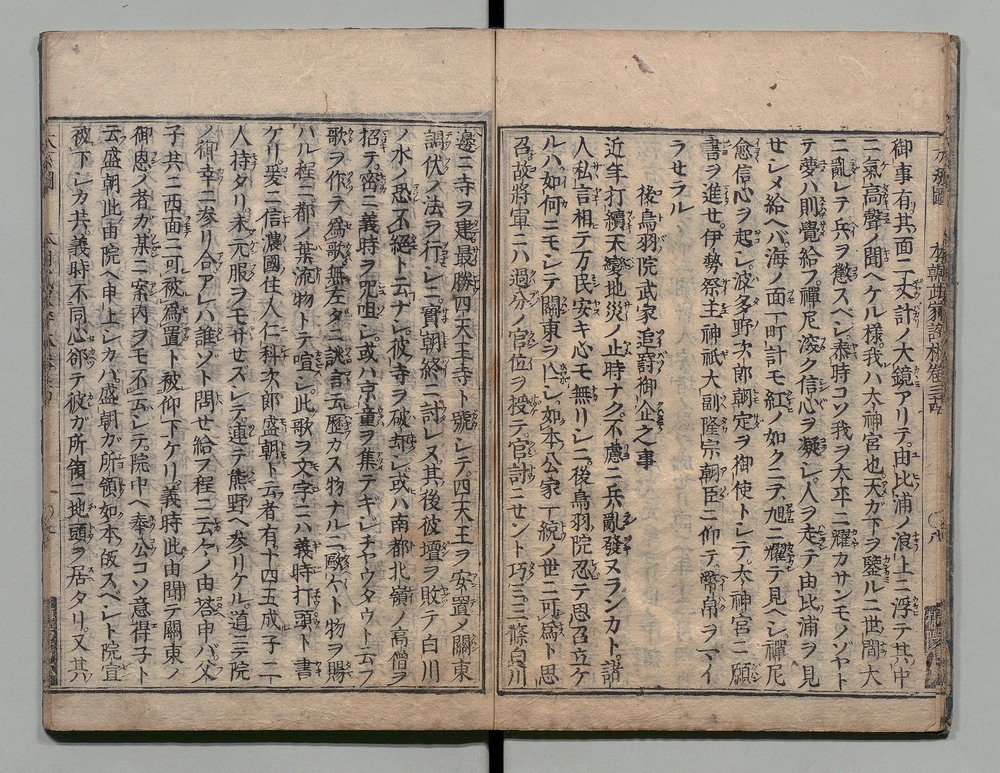 御事有其面二丈計ノ大鏡アリテ由比浦ノ浪上ニ浮テ其中
ニ氣高聲ノ聞ヘケル様我ハ太神宮也天ガ下ヲ鑒ルニ世間大
ニ亂レテ兵ヲ懲スベシ泰時コソ我ヲ太平ニ耀カサンモノゾヤト
テ夢ハ則覺給フ禪尼深ク信心ヲ凝シ人ヲ走テ由比浦ヲ見
セシメ給ヘハ海ノ面丁町計モ紅ノ如クニテ旭ニ耀テ見ヘシ禪尼
愈信心ヲ起シ波多野次郎朝定ヲ御使トシテ太神宮ニ願
書ヲ進セ伊勢祭主神祇大副隆宗朝臣ニ仰テ幣帛ヲマイ
ラセラル
後鳥羽院武家追討御企之事
近年打續天變地災ノ止時ナク不慮ニ兵亂發ヌランカト諸
人私言相テ万民安キ心モ無リシニ後鳥羽院忍テ思召立ケ
ルハ如何ニモシテ關東ヲ亡シ如本公家一統ノ世ニ可爲ト思
召故將軍ニハ過分ノ官位ヲ授テ官討ニセント巧ミ三條白川
邊ニ寺ヲ建最勝四天王寺ト號シテ四天王ヲ安置ノ關東
調伏ノ法ヲ行シニ實朝終ニ討レヌ其後彼壇ヲ敗テ白川
ノ水ノ恐不絕ト云ナシ彼寺ヲ破却シ或ハ南都北嶺ノ高僧ヲ
招テ密ニ義時ヲ咒咀シ或ハ京童ヲ集テギレチヤウタウト云フ
歌ヲ作テ爲歌無左タニ誠言云歷カス物ナルニ歐ケト物ヲ賜
ハル程ニ都ノ葉流物トテ喧シ此歌ヲ文字ニハ義時打頭ト書
ケリ爰ニ信濃國住人仁科次郎盛朝ト云者有十四五成子二
人持タリ未元服ヲモサセズシテ連テ熊野ヘ參リケル道ニテ院
ノ御幸ニ參リ合アレハ誰ゾト問セ給フ程ニ云々ノ由答申ハ父
子共ニ西面ニ可被爲置ト被仰下ケリ義時此由聞テ關東ノ
御恩ノ者ガ某ニ案內ヲモ不云シテ院中ヘ奉公コソ意得子ト
云盛朝此由院ヘ申上シカバ盛朝ガ所領如本皈スベシト院宣
被下シカ共義時不同心郤テ彼ガ所領ニ地頭ヲ居タリ又其